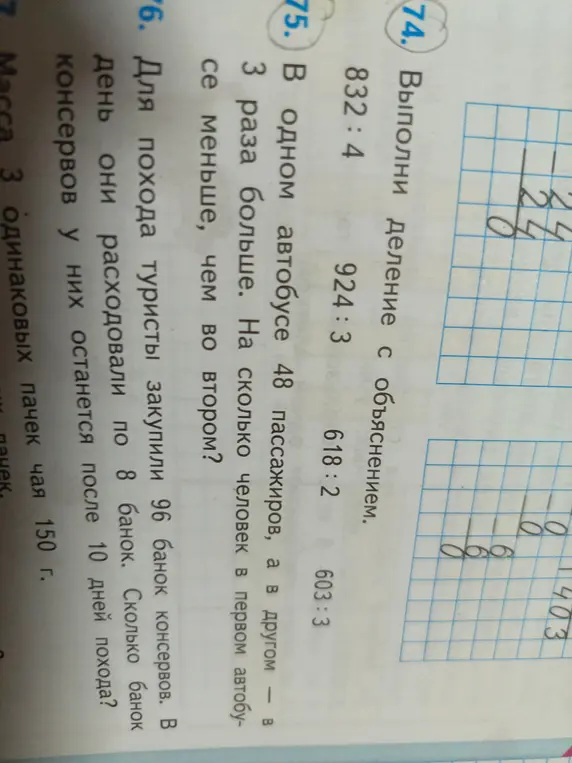 24
- 24
0
1403
- 0
- 6
6
0
74. Выполни деление с объяснением.
832 : 4 924 : 3 618 : 2 603 : 3
75. В одном автобусе 48 пассажиров, а в другом — в
3 раза больше. На сколько человек в первом автобу-
се меньше, чем во втором?
76. Для похода туристы закупили 96 банок консервов. В
день они расходовали по 8 банок. Сколько банок
консервов у них останется после 10 дней похода?
7 Масса 3 одинаковых пачек чая 150 г.